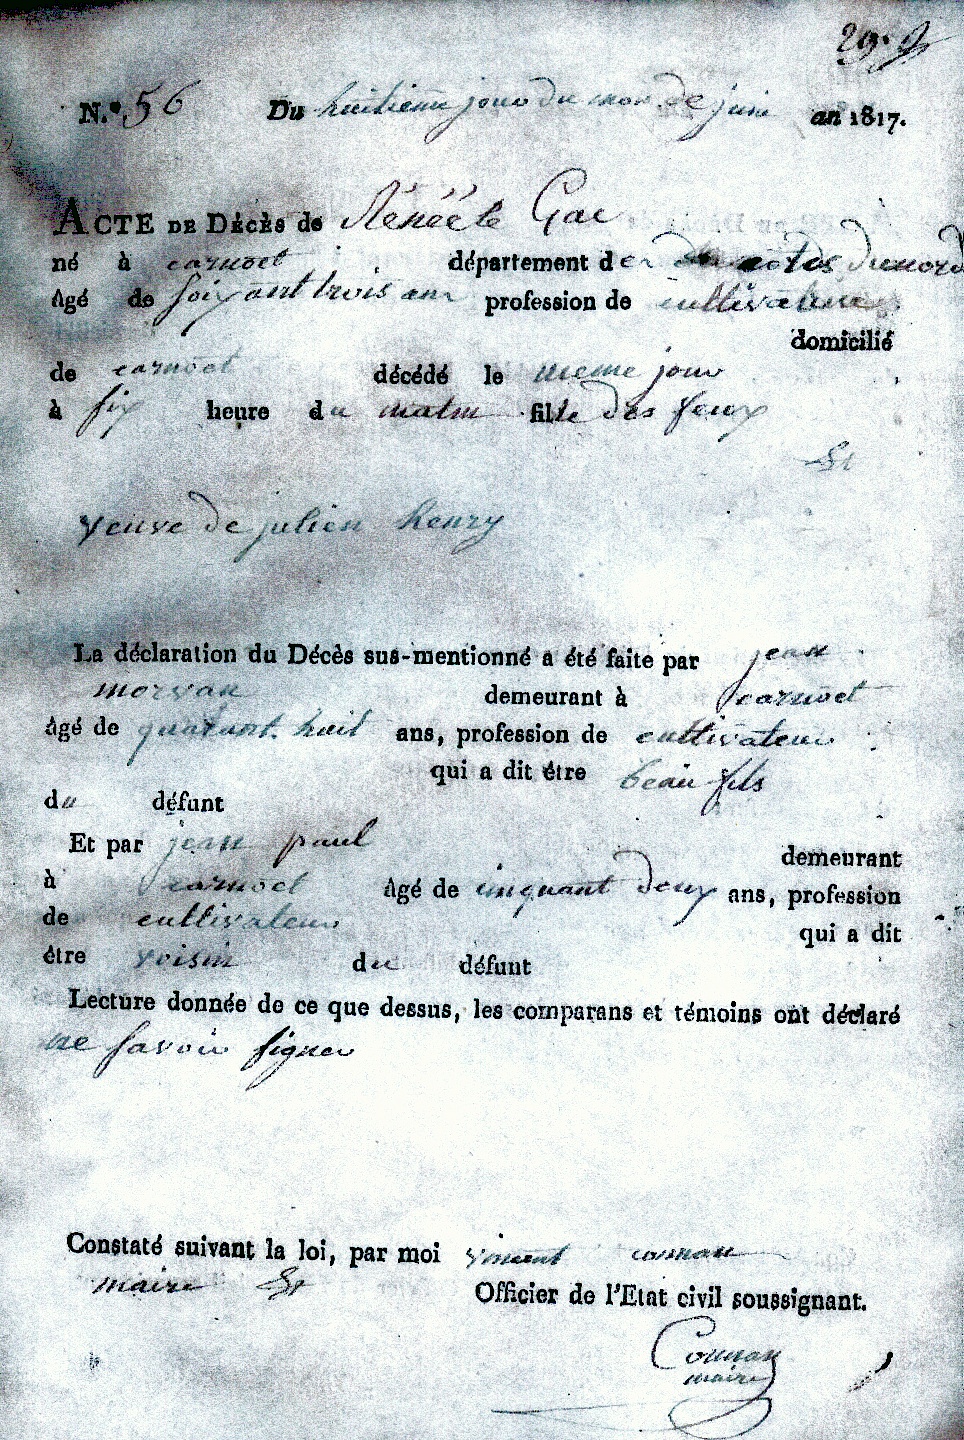 N.º 56 Du huitieme jour du mois de juin an 1817.
ACTE DE Décès de Rénéé le Gac
né à carnoet département des cotes dunord
Âgé de soixant trois ans profession de cultivatrice
domicilié
de carnoet décédé le meme jour
à six heure du matin fille des feux
&
veuve de julien henry
La déclaration du Décès sus-mentionné a été faite par jean
morvan demeurant à carnoet
âgé de quarant huit ans, profession de cultivateur
qui a dit être beau fils
du défunt
Et par jean paul demeurant
à carnoet âgé de cinquant deux ans, profession
de cultivateur qui a dit
être voisin du défunt
Lecture donnée de ce que dessus, les comparans et témoins ont déclaré
ne savoir signer
Constaté suivant la loi, par moi vincent connan
maire & Officier de l'Etat civil soussignant.
Connan
maire